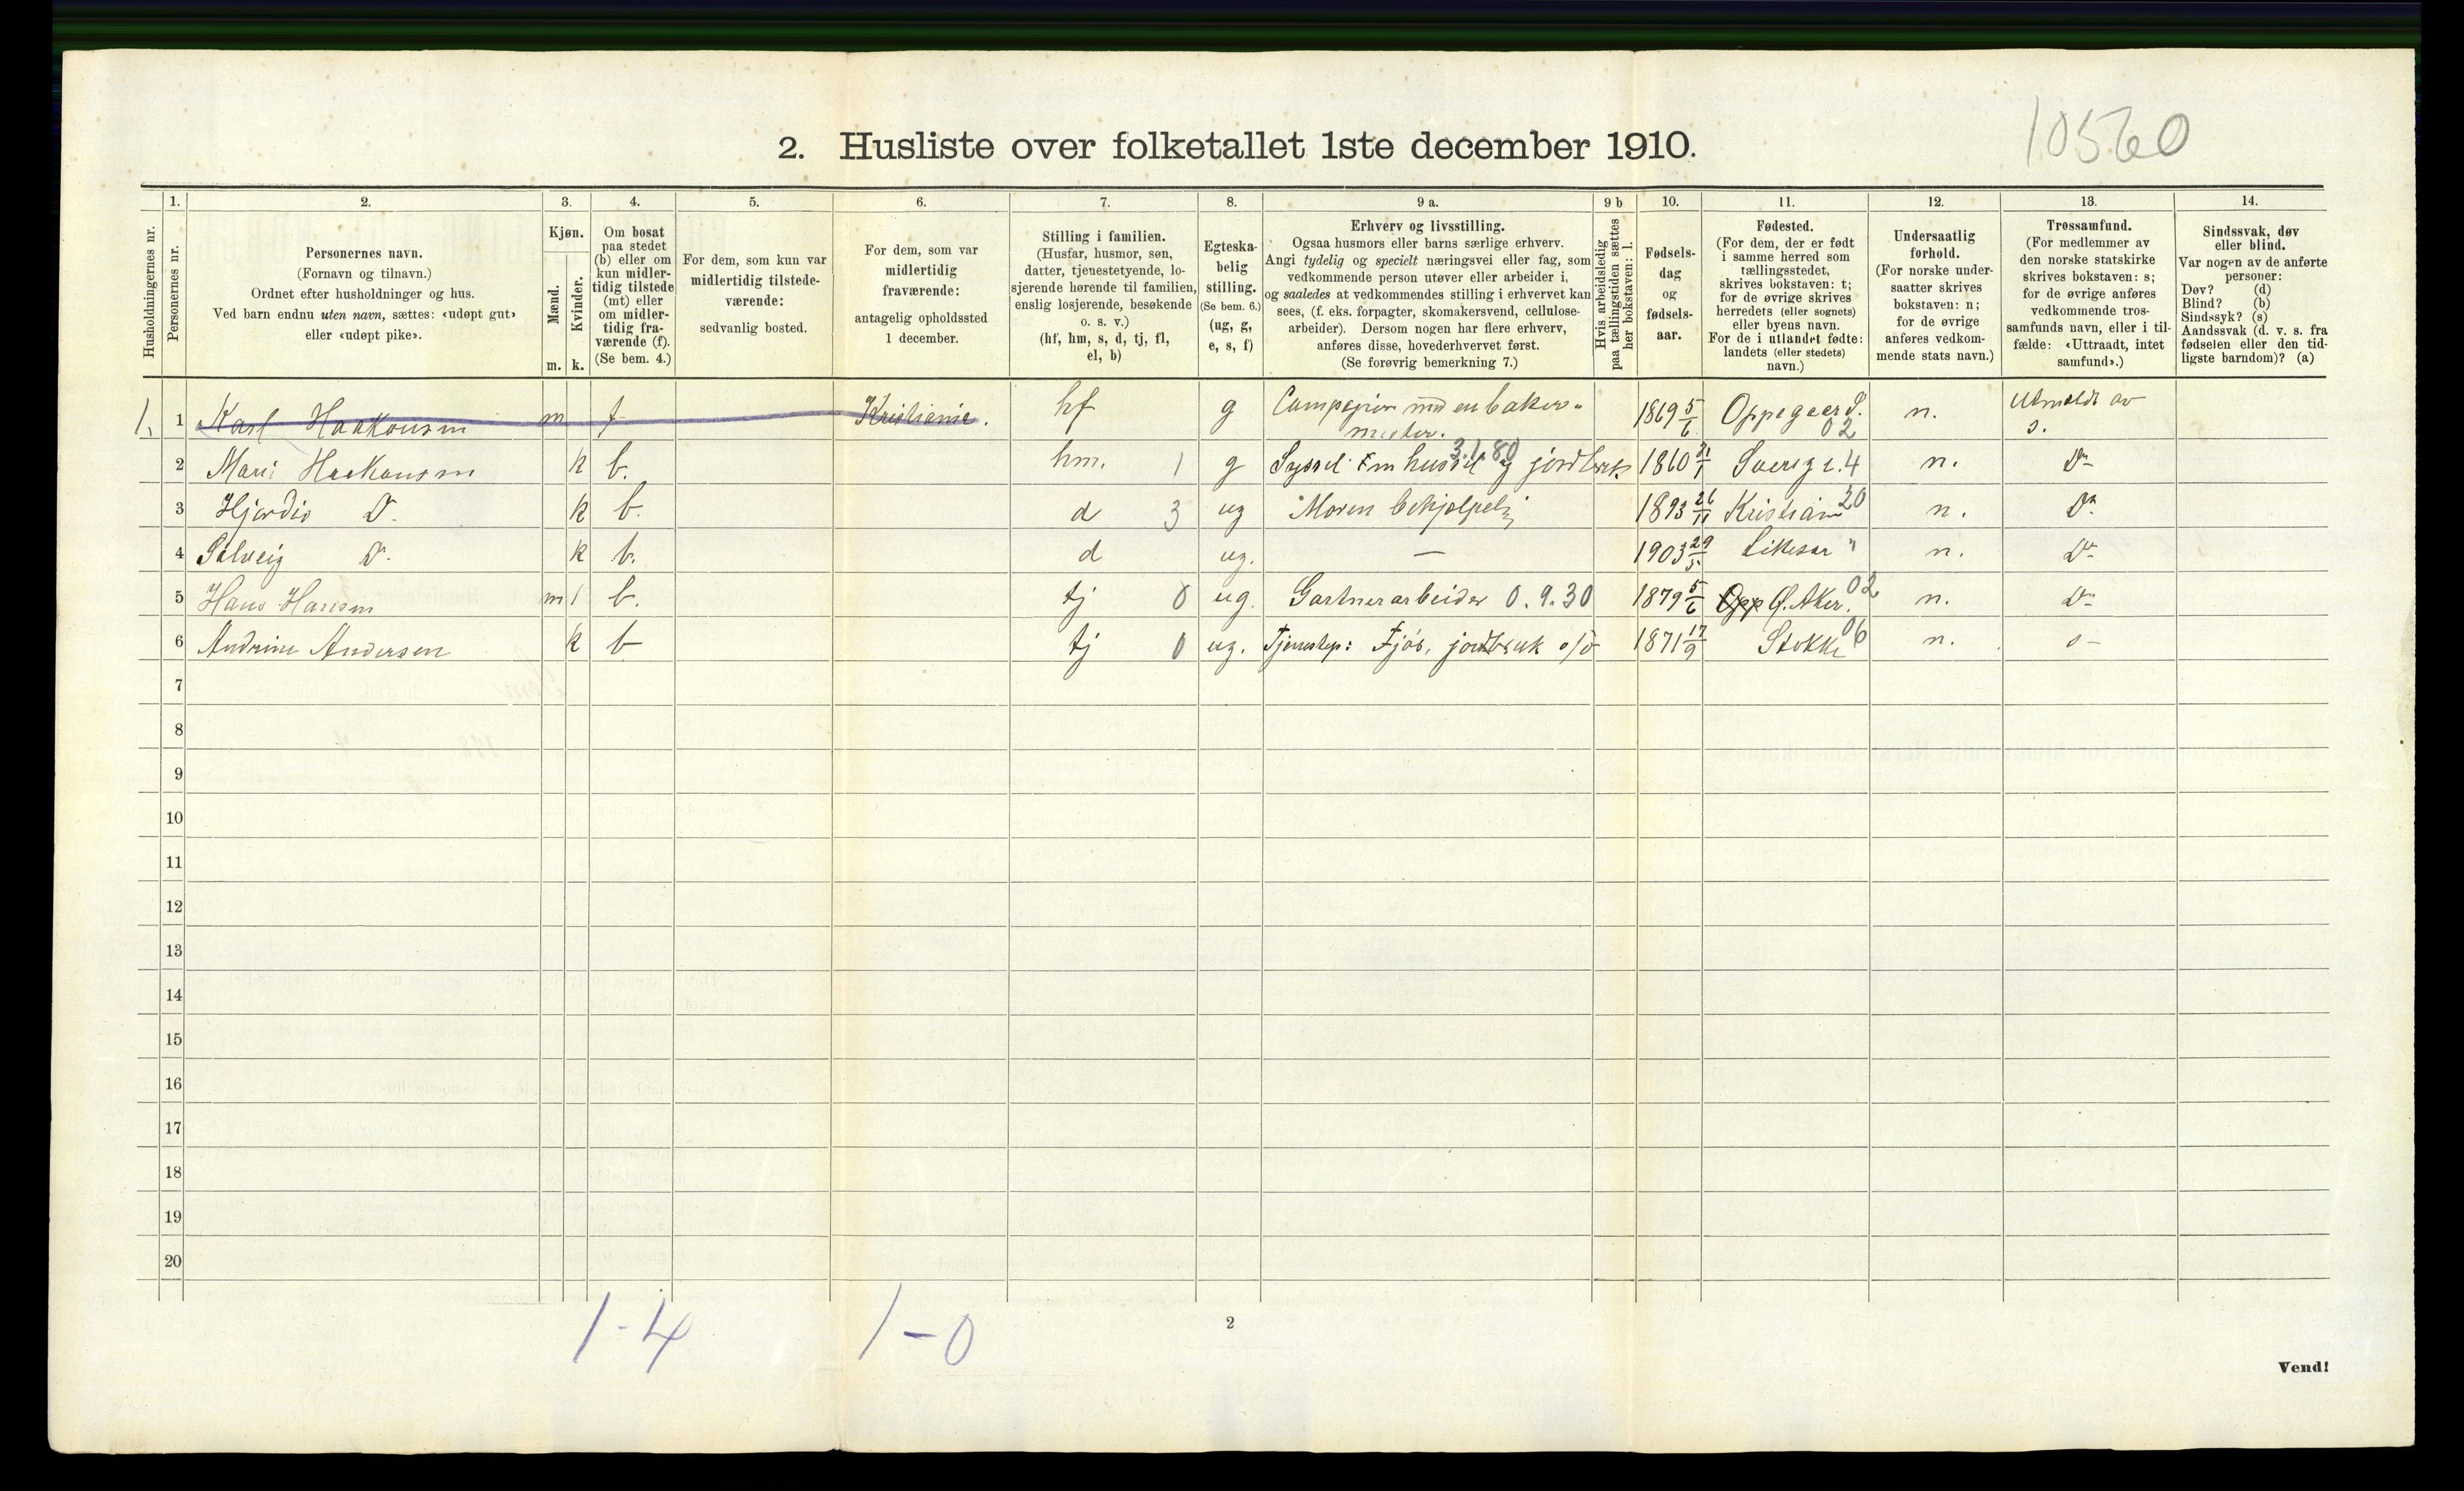 10560
2. Husliste over folketallet 1ste december 1910.
1. 2. 3. 4. 5. 6. 7. 8. 9 a. 9 b 10. 11. 12. 13. 14.
Husholdningernes nr.
Personernes nr.
Personernes navn.
(Fornavn og tilnavn.)
Ordnet efter husholdninger og hus.
Ved barn endnu uten navn, sættes: «udøpt gut»
eller «udøpt pike».
Kjøn.
Mænd.
Kvinder.
m. k.
Om bosat
paa stedet
(b) eller om
kun midler-
tidig tilstede
(mt) eller
om midler-
tidig fra-
værende (f).
(Se bem. 4.)
For dem, som kun var
midlertidig tilstede-
værende:
sedvanlig bosted.
For dem, som var
midlertidig
fraværende:
antagelig opholdssted
1 december.
Stilling i familien.
(Husfar, husmor, søn,
datter, tjenestetyende, lo-
sjerende hørende til familien,
enslig losjerende, besøkende
o. s. v.)
(hf, hm, s, d, tj, fl,
el, b)
Egteska-
belig
stilling.
(Se bem. 6.)
(ug, g,
e, s, f)
Erhverv og livsstilling.
Ogsaa husmors eller barns særlige erhverv.
Angi tydelig og specielt næringsvei eller fag, som
vedkommende person utøver eller arbeider i,
og saaledes at vedkommendes stilling i erhvervet kan
sees, (f. eks. forpagter, skomakersvend, cellulose-
arbeider). Dersom nogen har flere erhverv,
anføres disse, hovederhvervet først.
(Se forøvrig bemerkning 7.)
Hvis arbeidsledig
paa tællingstiden sættes
her bokstaven: l.
Fødsels-
dag
og
fødsels-
aar.
Fødested.
(For dem, der er født
i samme herred som
tællingsstedet,
skrives bokstaven: t;
for de øvrige skrives
herredets (eller sognets)
eller byens navn.
For de i utlandet fødte:
landets (eller stedets)
navn.)
Undersaatlig
forhold.
(For norske under-
saatter skrives
bokstaven: n;
for de øvrige
anføres vedkom-
mende stats navn.)
Trossamfund.
(For medlemmer av
den norske statskirke
skrives bokstaven: s;
for de øvrige anføres
vedkommende tros-
samfunds navn, eller i til-
fælde: «Uttraadt, intet
samfund».)
Sindssvak, døv
eller blind.
Var nogen av de anførte
personer:
Døv? (d)
Blind? (b)
Sindssyk? (s)
Aandssvak (d. v. s. fra
fødselen eller den tid-
ligste barndom)? (a)
1. 1 Karl Haakonsen m f Kristiania. hf g Kompagnon med en baker- 1869 5/6 Oppegaard. 02 n. Utmeldt av
mester. s.
2 Mari Haakonsen k b. hm. 1 g Syssel m husstel og jordbruk 3.1.80 1860 21/1 Sverige. 4 n. Do
3 Hjørdis Do. k b. d 3 ug Moren behjelpelig 1893 26/11 Kristiania 20 n. Do
4 Solveig Do. k b. d ug. — 1903 29/5 Likesaa " n. Do
5 Hans Hansen m 1 b. tj 0 ug. Gartnerarbeider 0.9.30 1879 5/6 Opp Ø. Aker. 02 n. Do
6 Andrine Andersen k b tj 0 ug. Tjenestep: Fjøs, jordbruk o/ö 1871 17/9 Stokke 06 n. s-
7
8
9
10
11
12
13
14
15
16
17
18
19
20
1-4 1-0
2
Vend!